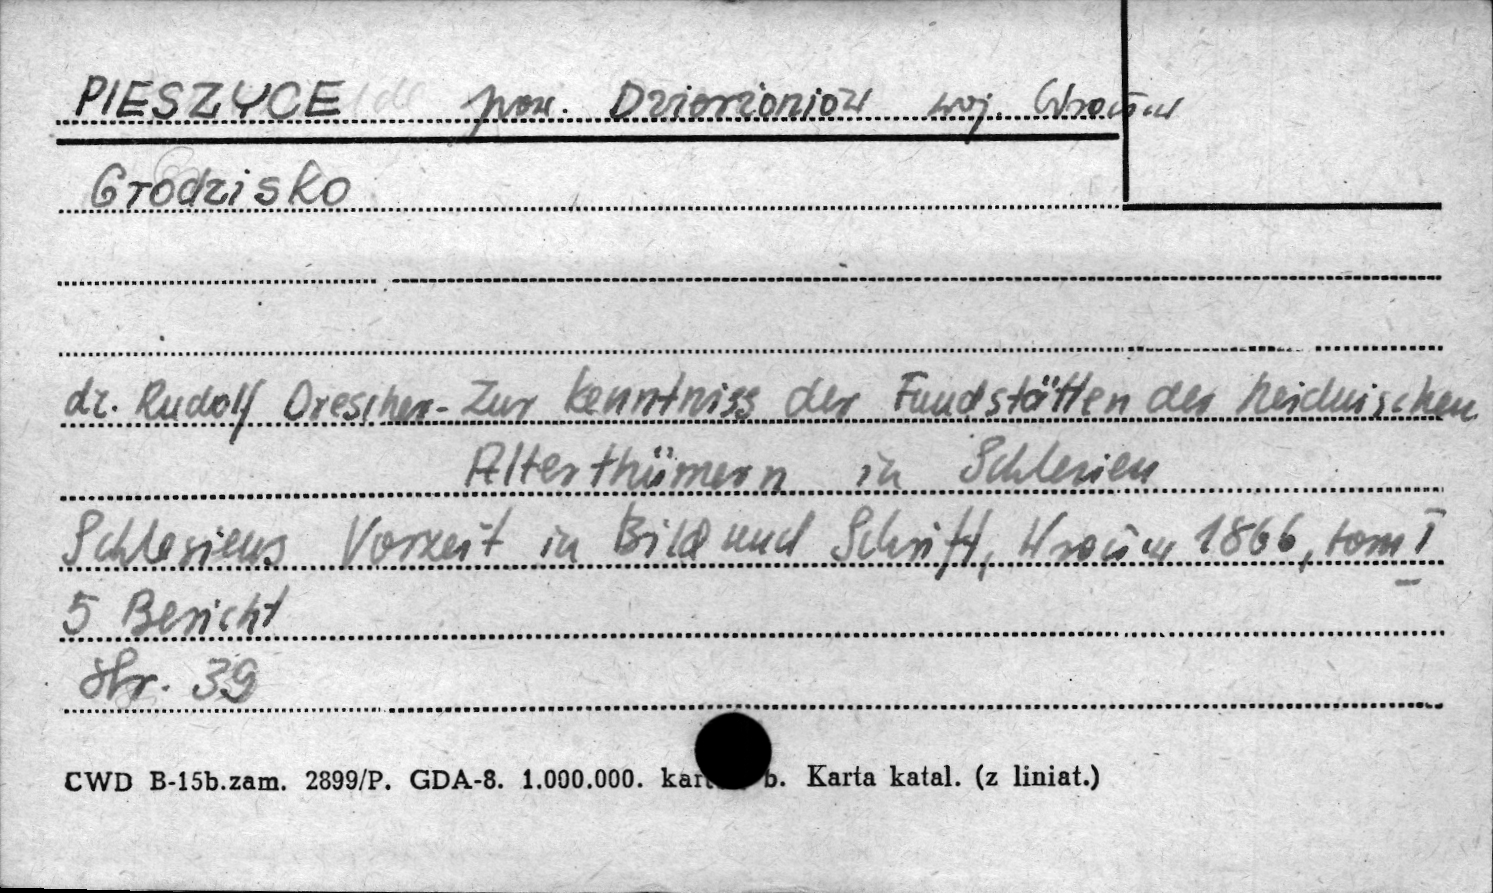 PIESZYCE pow. Dzierżoniów woj. Wrocław
Grodzisko
dr. Rudolf Drescher - Zur Kenntniss der Fundstätten der heidnischen
Alterthümern in Schlesien
Schlesiens Vorzeit in Bild und Schrift, Wrocław 1866, tom I
5 Bericht
str. 39
CWD B-15b.zam. 2899/P. GDA-8. 1.000.000. b. Karta katal. (z liniat.)